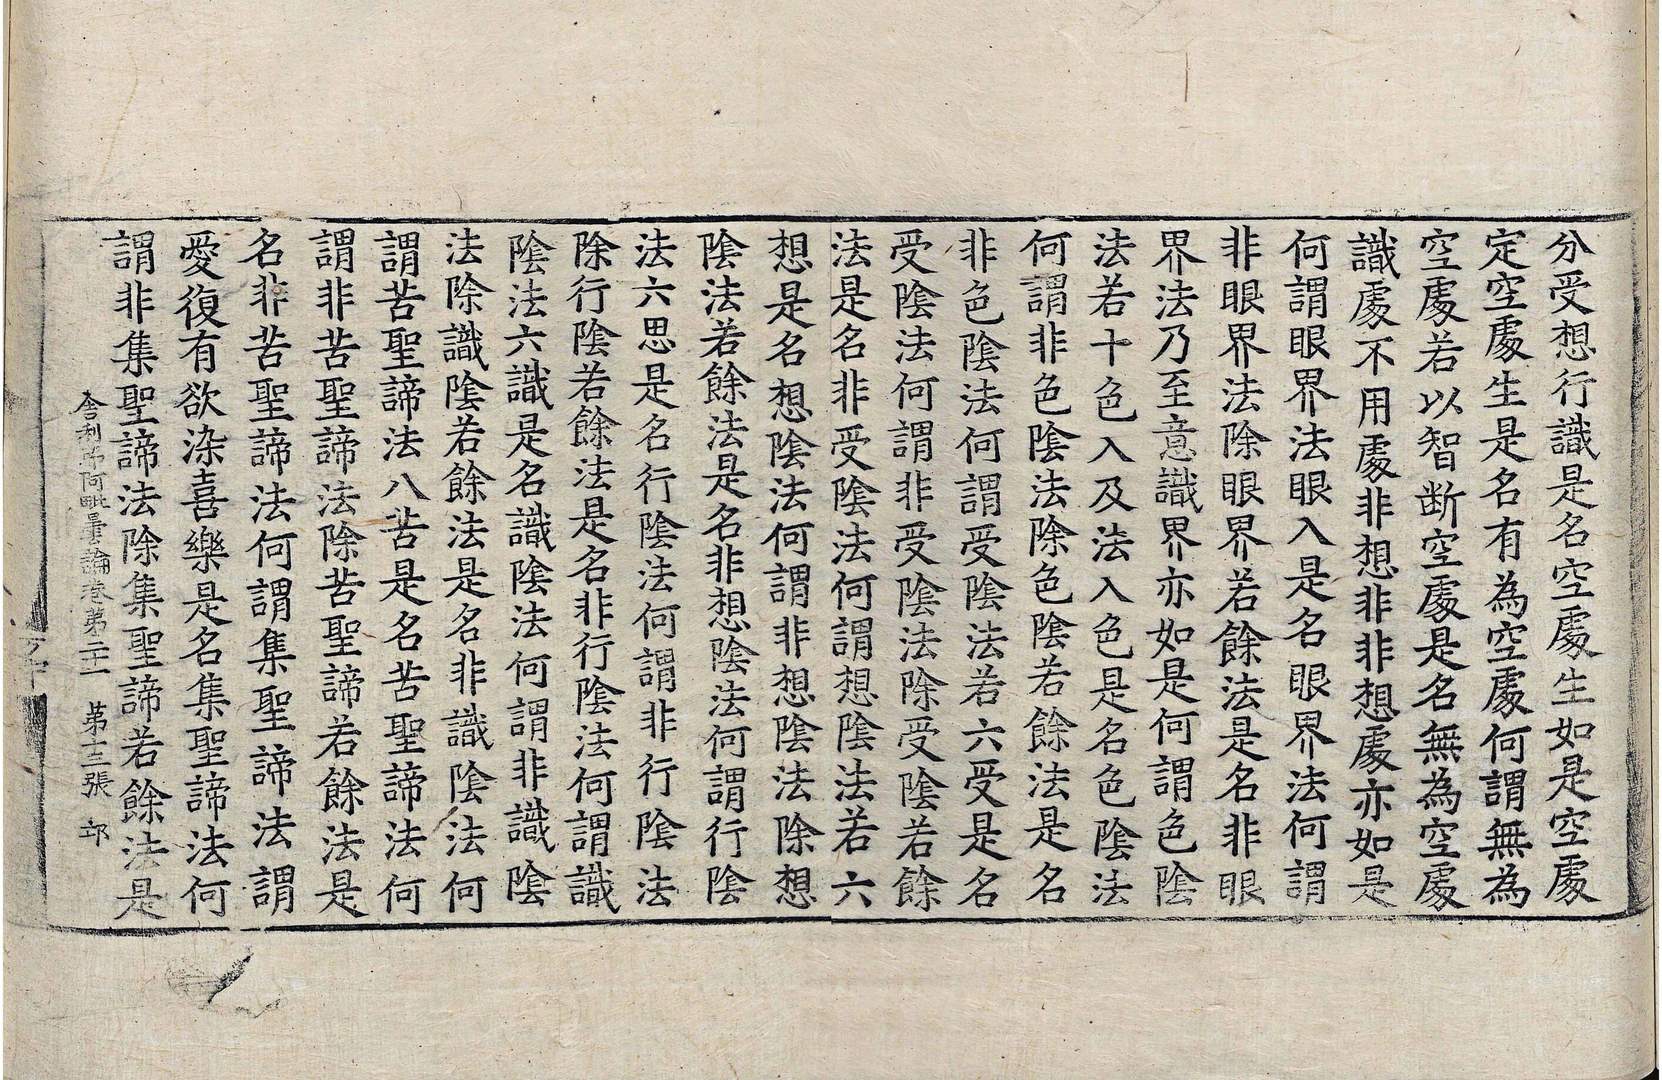 分受想行識是名空處生如是空處
定空處生是名有為空處何謂無為
空處若以智断空處是名無為空處
識處不用處非想非非想處亦如是
何謂眼界法眼入是名眼界法何謂
非眼界法除眼界若餘法是名非眼
界法乃至意識界亦如是何謂色陰
法若十色入及法入色是名色陰法
何謂非色陰法除色陰若餘法是名
非色陰法何謂受陰法若六受是名
受陰法何謂非受陰法除受陰若餘
法是名非受陰法何謂想陰法若六
想是名想陰法何謂非想陰法除想
陰法若餘法是名非想陰法何謂行陰
法六思是名行陰法何謂非行陰法
除行陰若餘法是名非行陰法何謂識
陰法六識是名識陰法何謂非識陰
法除識陰若餘法是名非識陰法何
謂苦聖諦法八苦是名苦聖諦法何
謂非苦聖諦法除苦聖諦若餘法是
名非苦聖諦法何謂集聖諦法謂
愛復有欲染喜樂是名集聖諦法何
謂非集聖諦法除集聖諦若餘法是
舍利弗阿毗曇論卷第二十一 第十三張